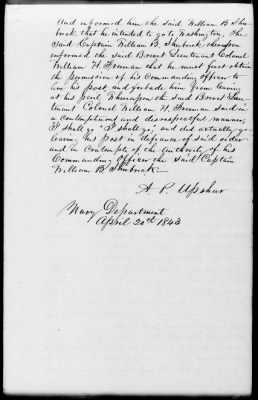 And informed him the said William B. Shu-
brick that he intended to go to Washington, the
said Captain William B. Shubrick thereupon
informed the said Brevet Lieutenant Colonel
William H. Freeman that he must first obtain
the permission of his Commanding officer to
leave his post, and forbade him from leaving
at his peril Whereupon the said Brevet Lieu-
tenant Colonel William H. Freeman said in
a contemptuous and disrespectful manner,
"I shall go" "I shall go," and did actually go
leaving his post in defiance of said order
and in contempt of the authority of his
Commanding Officer the said Captain
William B. Shubrick.
A. P. Upshur
Navy Department
April 20th 1843